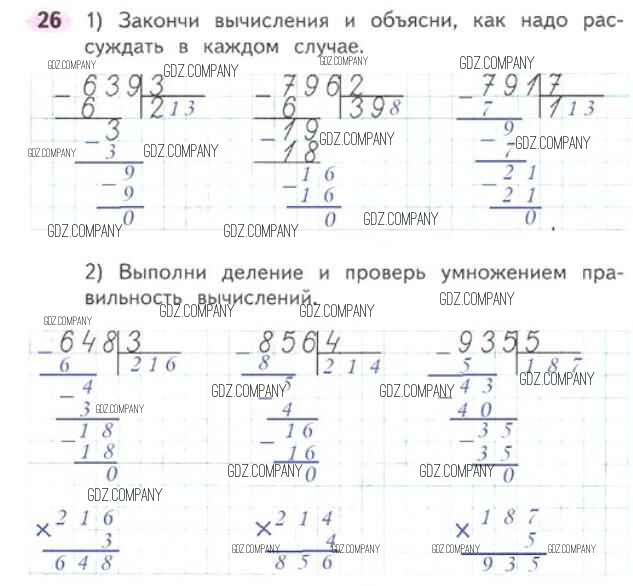 26 1) Закончи вычисления и объясни, как надо рас-
суждать в каждом случае.
GDZ.COMPANY GDZ.COMPANY GDZ.COMPANY GDZ.COMPANY
− 639 3 − 796 2 − 791 7
6 213 6 398 7 113
− 3 − 19 − 9
3 18 7
GDZ.COMPANY GDZ.COMPANY GDZ.COMPANY GDZ.COMPANY
− 9 − 16 − 21
9 16 21
0 0 0
GDZ.COMPANY GDZ.COMPANY GDZ.COMPANY
2) Выполни деление и проверь умножением пра-
вильность вычислений.
GDZ.COMPANY GDZ.COMPANY GDZ.COMPANY GDZ.COMPANY
− 648 3 − 856 4 − 935 5
6 216 8 214 5 187
− 4 − 5 − 43
3 4 40
GDZ.COMPANY GDZ.COMPANY GDZ.COMPANY GDZ.COMPANY
− 18 − 16 − 35
18 16 35
0 0 0
GDZ.COMPANY GDZ.COMPANY GDZ.COMPANY
× 216 × 214 × 187
3 4 5
GDZ.COMPANY GDZ.COMPANY GDZ.COMPANY GDZ.COMPANY
648 856 935